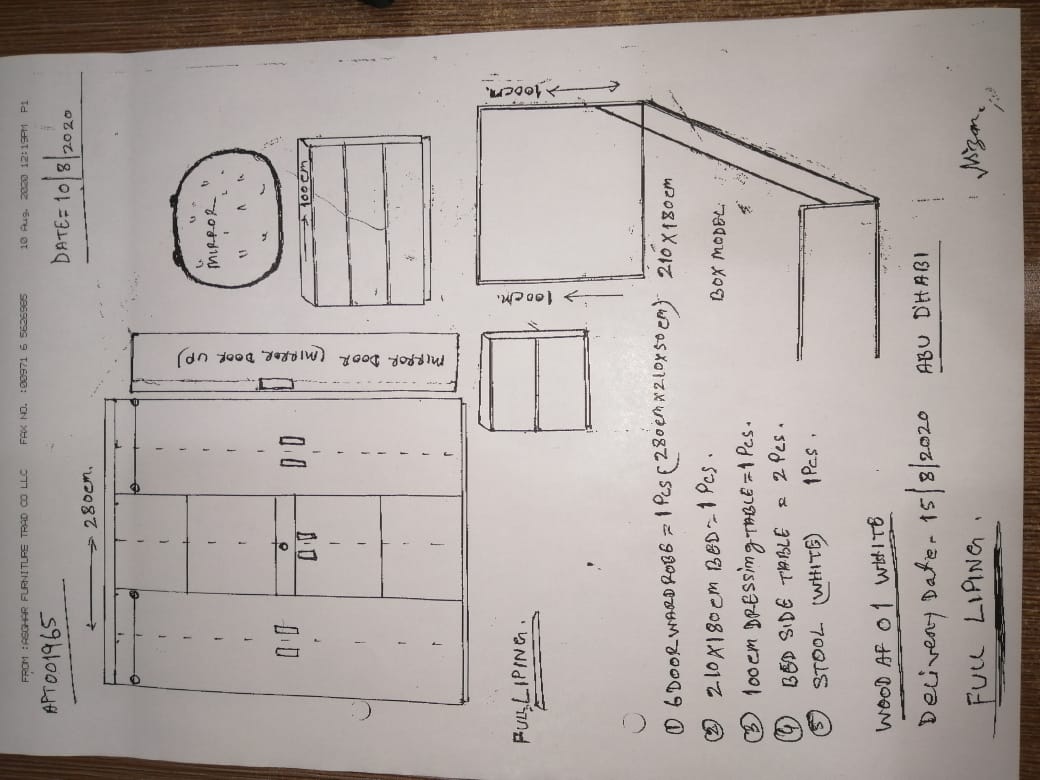 FROM :ASGHAR FURNITURE TRAD CO LLC FAX NO. :00971 6 5626985 10 Aug. 2020 12:19PM P1
APT001965
DATE=10/8/2020
280cm.
MIRROR
100cm
MIRROR DOOR (MIRROR DOOR UP)
100cm.
100cm.
FULL LIPING.
① 6 DOOR WARDROBE = 1 Pcs (280cm x 210 x 50cm) 210 X 180cm
② 210 X 180cm BED = 1 Pcs. BOX MODEL
③ 100cm DRESSING TABLE = 1 Pcs.
④ BED SIDE TABLE = 2 Pcs.
⑤ STOOL (WHITE) 1Pcs.
WOOD AF 01 WHITE
Delivery Date - 15/8/2020 ABU DHABI
FULL LIPING.